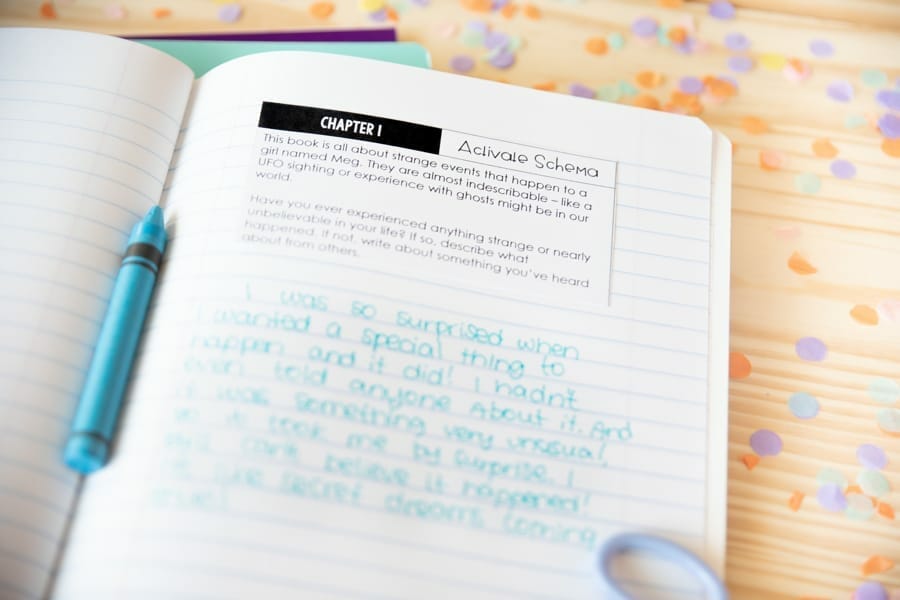 CHAPTER 1
Activate Schema
This book is all about strange events that happen to a
girl named Meg. They are almost indescribable – like a
UFO sighting or experience with ghosts might be in our
world.
Have you ever experienced anything strange or nearly
unbelievable in your life? If so, describe what
happened. If not, write about something you've heard
about from others.
I was so surprised when
I wanted a special thing to
happen and it did! I hadn't
even told anyone about it. And
it was something very unusual!
so it took me by surprise. I
still can't believe it happened!
It like secret dreams coming
true!